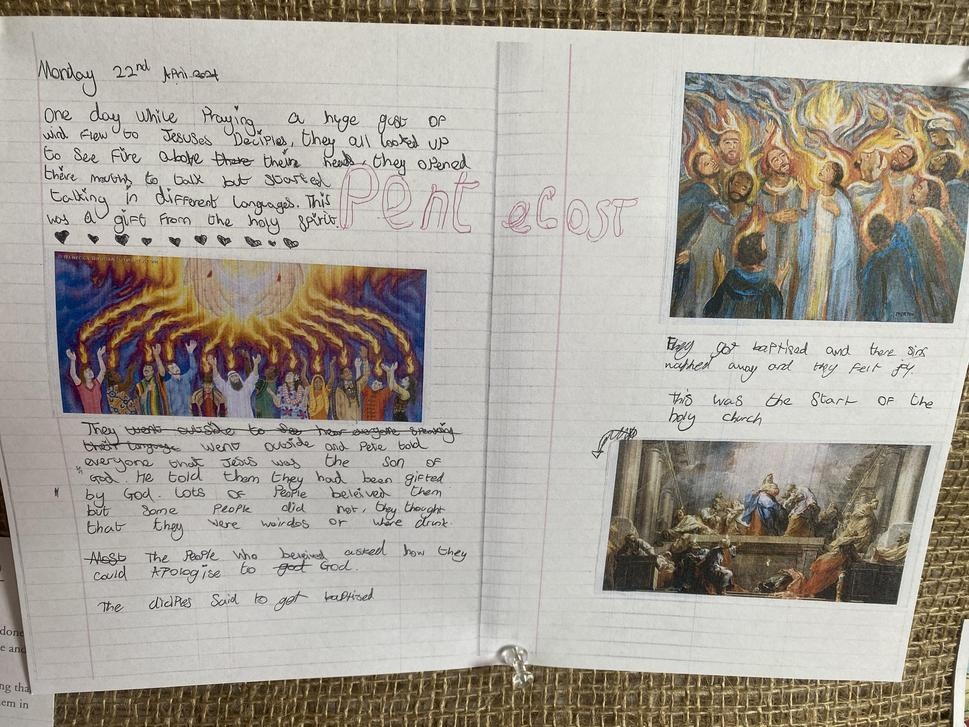 Monday 22nd April 2024
One day while Praying a huge gust OF
wind Flew to Jesuses Deciples, they all looked up
to see Fire above there theire heads, they opened
there mouths to talk but started
talking in different languages. This
was a gift From the holy Spirit.
Pentecost
They went outside to see hear everyone speaking
their language went outside and Pete told
everyone that Jesus was the son of
God. He told them they had been gifted
by God. Lots of People beleived them
but some People did not, they thought
that they were weirdos or were drunk.
Most The People who beleived asked how they
could Apologise to god God.
The diciples said to get baptised
They got baptised and there sins
washed away and they felt joy.
This was the start OF the
holy church
done
e and
ng tha
em in